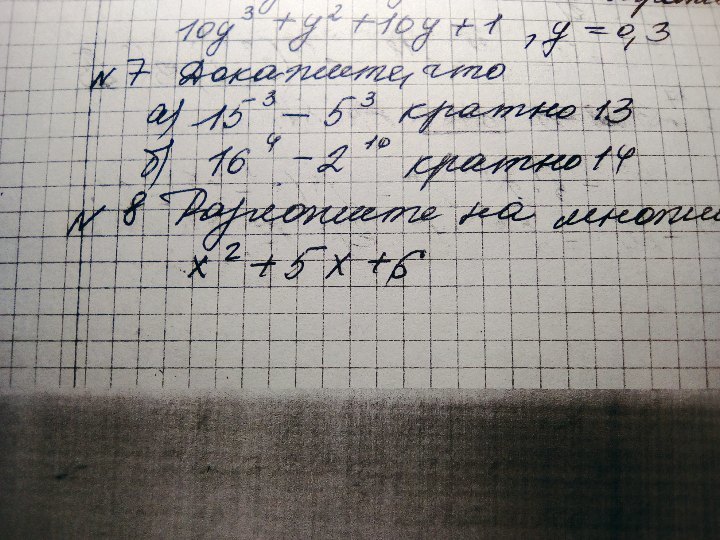 10y³ + y² + 10y + 1 , y = 0,3
№7 Докажите, что
а) 15³ – 5³ кратно 13
б) 16⁴ – 2¹⁰ кратно 14
№8 Разложите на множи
x² + 5x + 6